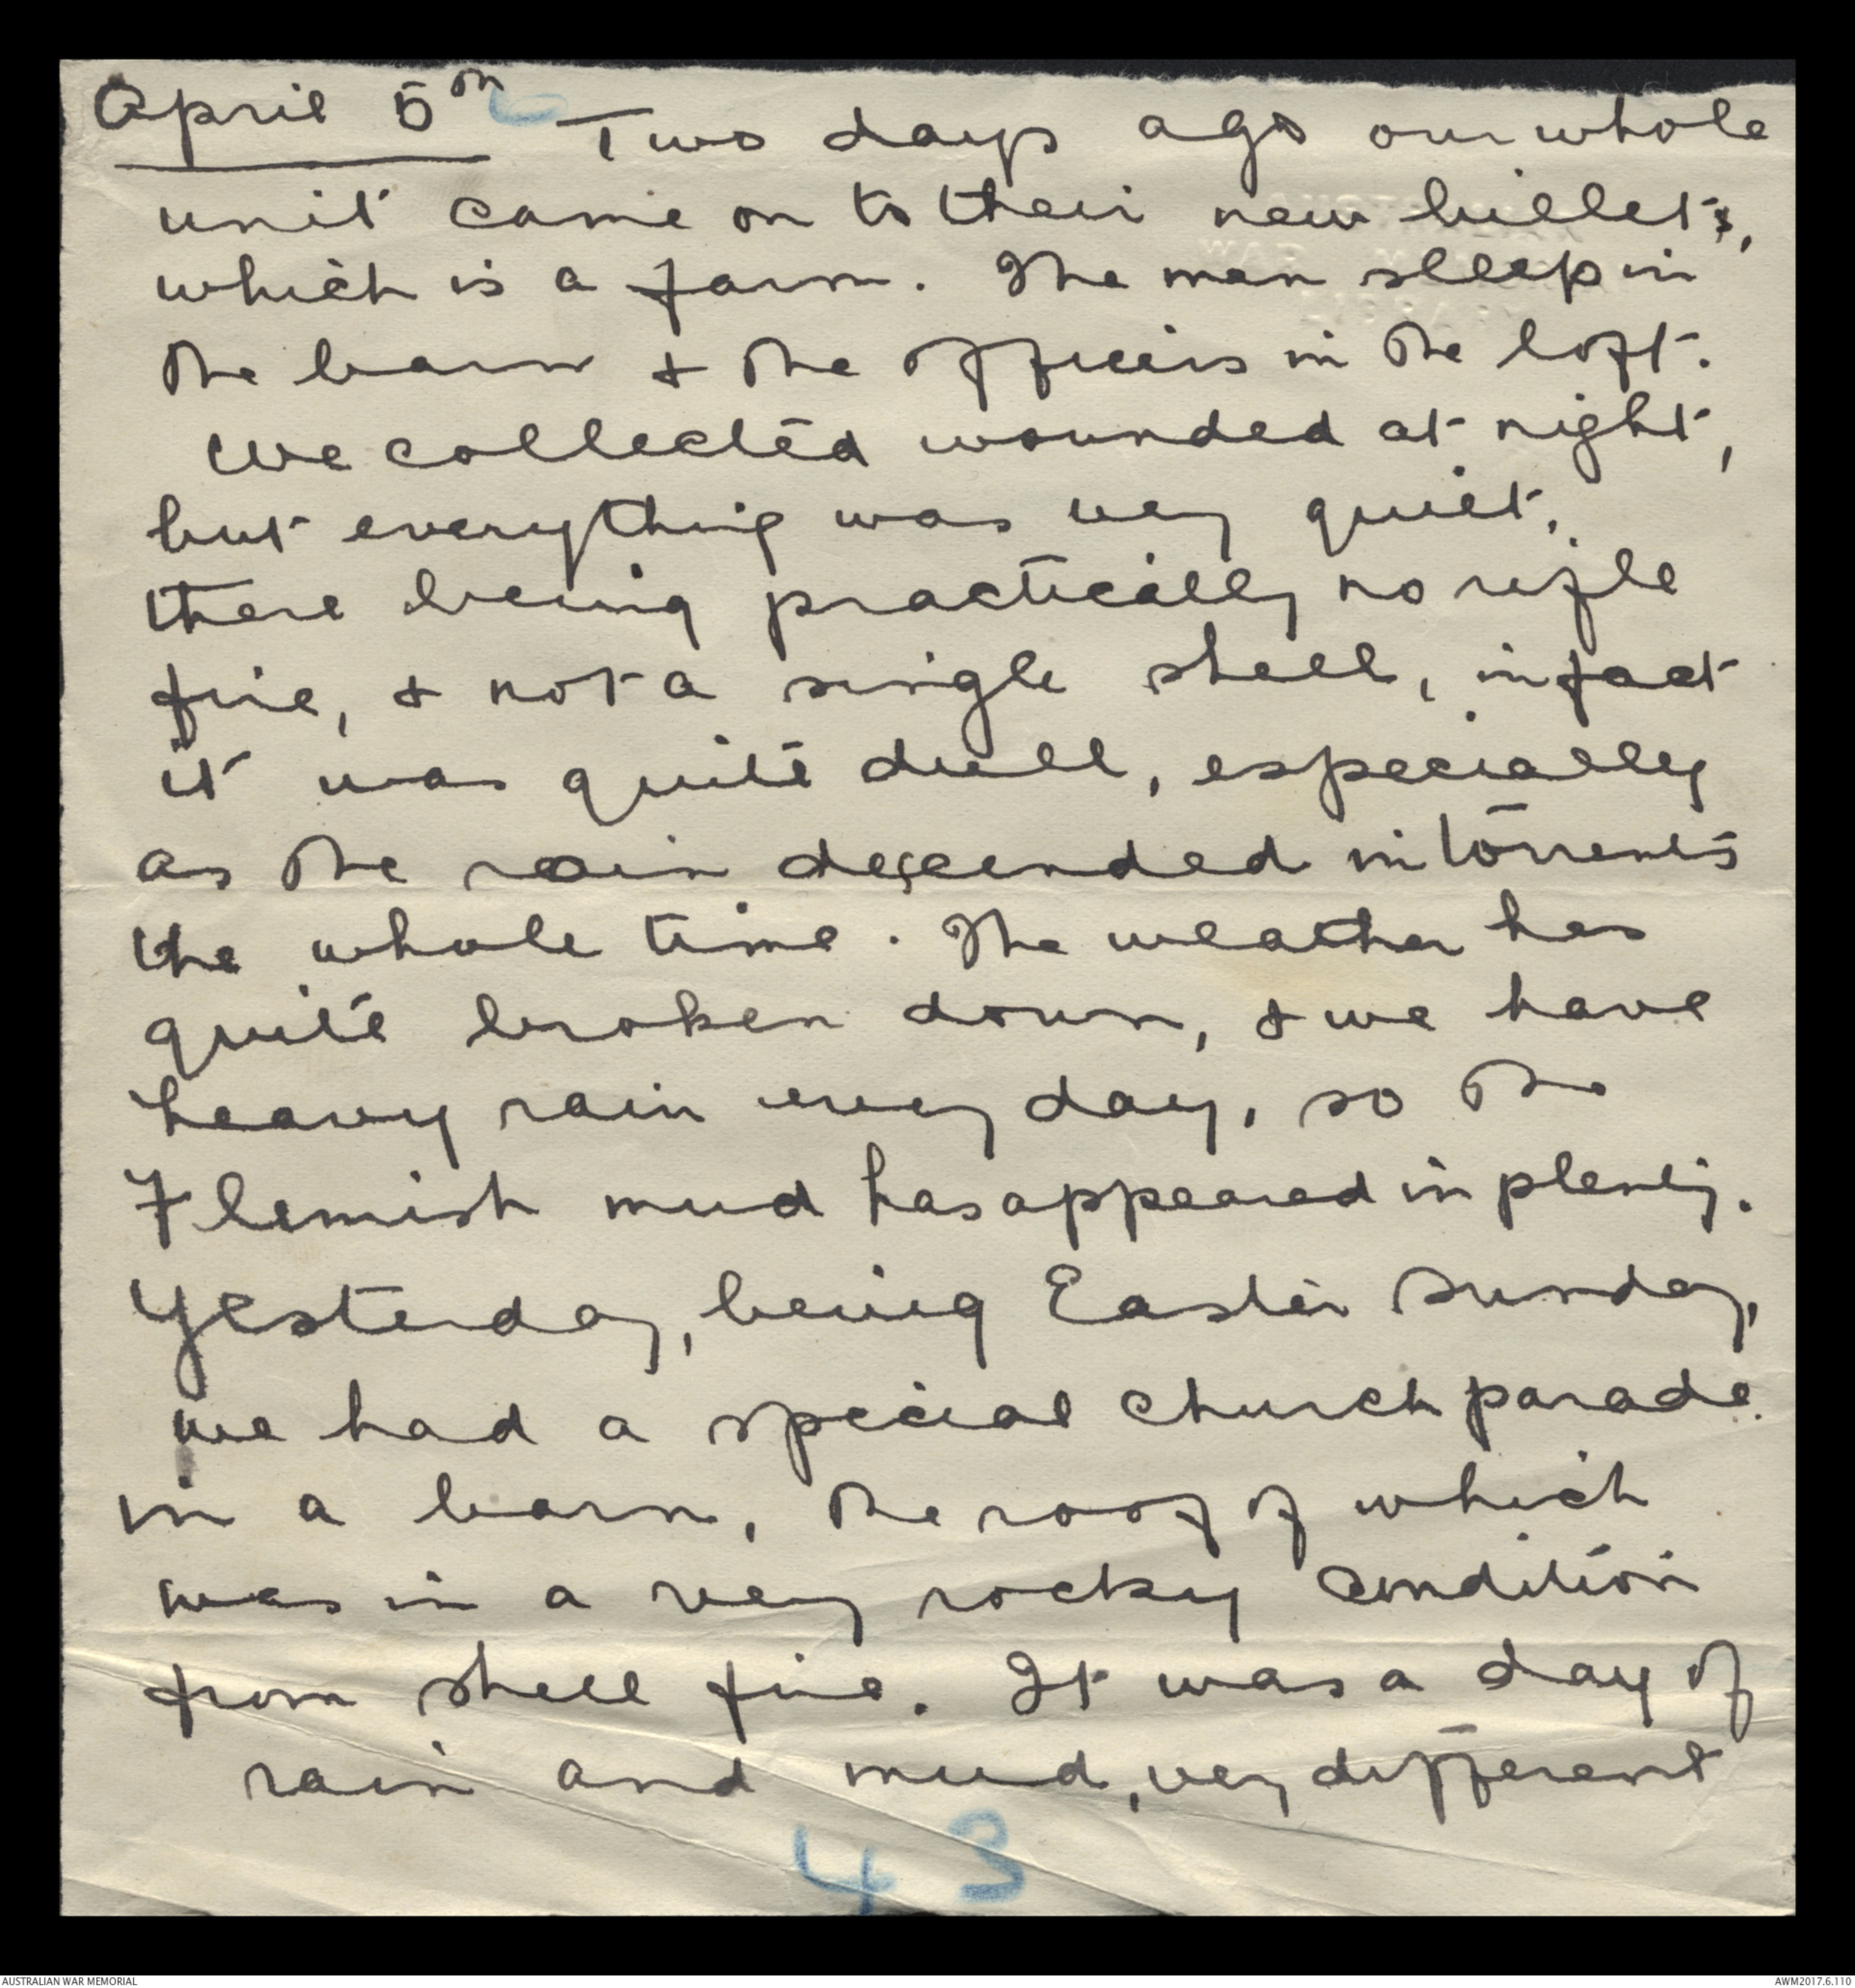 April 5th Two days ago our whole
unit came on to their new billets,
which is a farm. The men sleep in
the barn & the officers in the loft.
We collected wounded at night,
but everything was very quiet,
there being practically no rifle
fire, & not a single shell, in fact
it was quite dull, especially
as the rain descended in torrents
the whole time. The weather has
quite broken down, & we have
heavy rain every day, so the
Flemish mud has appeared in plenty.
Yesterday, being Easter Sunday,
we had a special church parade
in a barn, the roof of which
was in a very rocky condition
from shell fire. It was a day of
rain and mud, very different
43
AUSTRALIAN WAR MEMORIAL
AWM2017.6.110